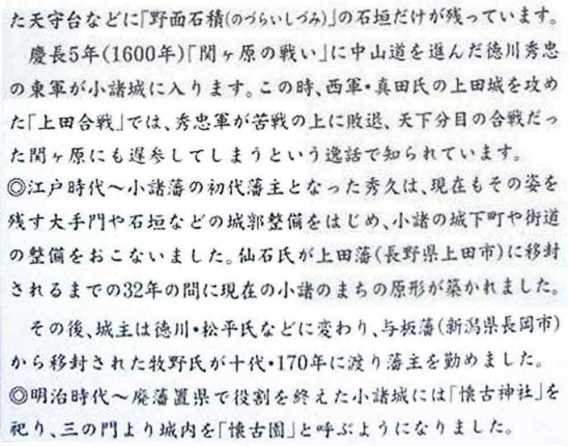 た天守台などに「野面石積(のづらいしづみ)」の石垣だけが残っています。
慶長5年(1600年)「関ヶ原の戦い」に中山道を進んだ徳川秀忠
の東軍が小諸城に入ります。この時、西軍・真田氏の上田城を攻め
た「上田合戦」では、秀忠軍が苦戦の上に敗退、天下分目の合戦だっ
た関ヶ原にも遅参してしまうという逸話で知られています。
◎江戸時代～小諸藩の初代藩主となった秀久は、現在もその姿を
残す大手門や石垣などの城郭整備をはじめ、小諸の城下町や街道
の整備をおこないました。仙石氏が上田藩(長野県上田市)に移封
されるまでの32年の間に現在の小諸のまちの原形が築かれました。
その後、城主は徳川・松平氏などに変わり、与板藩(新潟県長岡市)
から移封された牧野氏が十代・170年に渡り藩主を勤めました。
◎明治時代～廃藩置県で役割を終えた小諸城には「懐古神社」を
祀り、三の門より城内を「懐古園」と呼ぶようになりました。